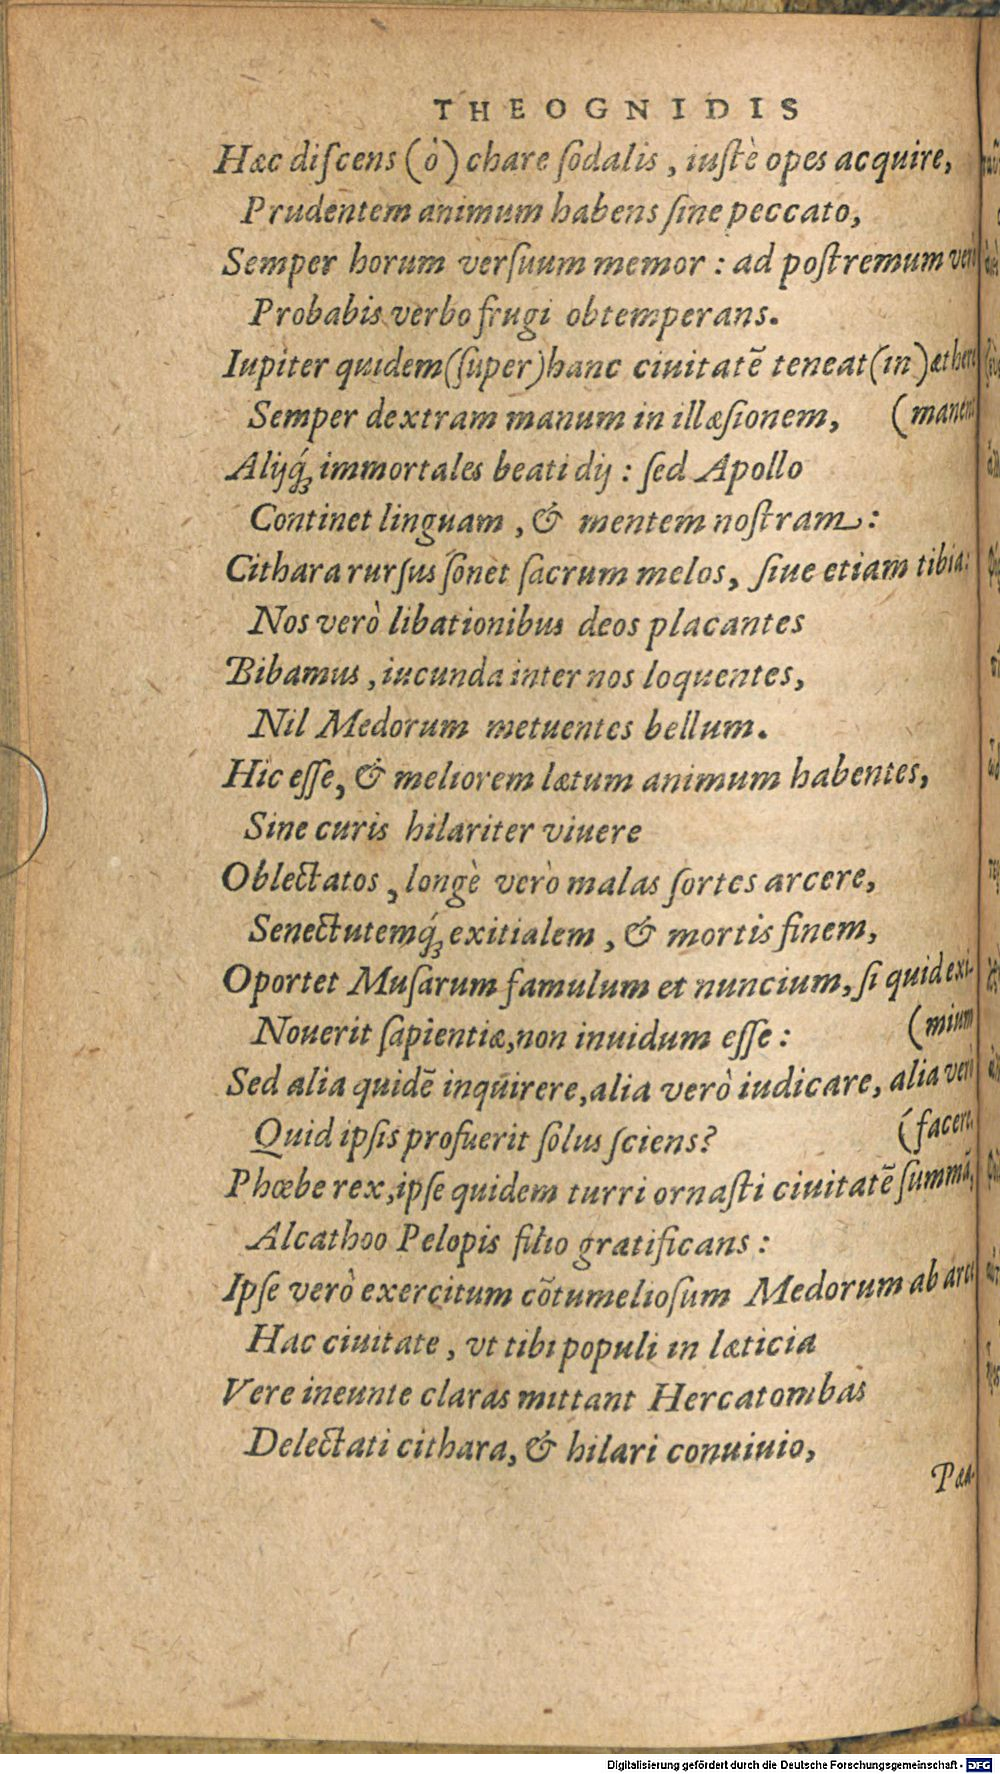 THEOGNIDIS
Hæc diſcens (ò) chare ſodalis, iuſtè opes acquire,
Prudentem animum habens ſine peccato,
Semper horum verſuum memor: ad poſtremum
Probabis verbo frugi obtemperans.
Iupiter quidem (ſuper) hanc ciuitatē teneat (in)
Semper dextram manum in illæſionem,
Alijq́; immortales beati dij: ſed Apollo
Continet linguam, & mentem noſtram:
Cithara rurſus ſonet ſacrum melos, ſiue etiam tibia:
Nos verò libationibus deos placantes
Bibamus, iucunda inter nos loquentes,
Nil Medorum metuentes bellum.
Hic eſſe, & meliorem lætum animum habentes,
Sine curis hilariter viuere
Oblectatos, longè verò malas ſortes arcere,
Senectutemq́; exitialem, & mortis finem,
Oportet Muſarum famulum et nuncium, ſi quid exi-
Nouerit ſapientiæ, non inuidum eſſe: (mium
Sed alia quidē inquirere, alia verò iudicare, alia
Quid ipſis profuerit ſolus ſciens?
Phœbe rex, ipſe quidem turri ornaſti ciuitatē ſummā,
Alcathoo Pelopis filio gratificans:
Ipſe verò exercitum cōtumelioſum Medorum ab
Hac ciuitate, vt tibi populi in læticia
Vere ineunte claras mittant Hercatombas
Delectati cithara, & hilari conuiuio,
Pæa-
Digitalisierung gefördert durch die Deutsche Forschungsgemeinschaft - DFG